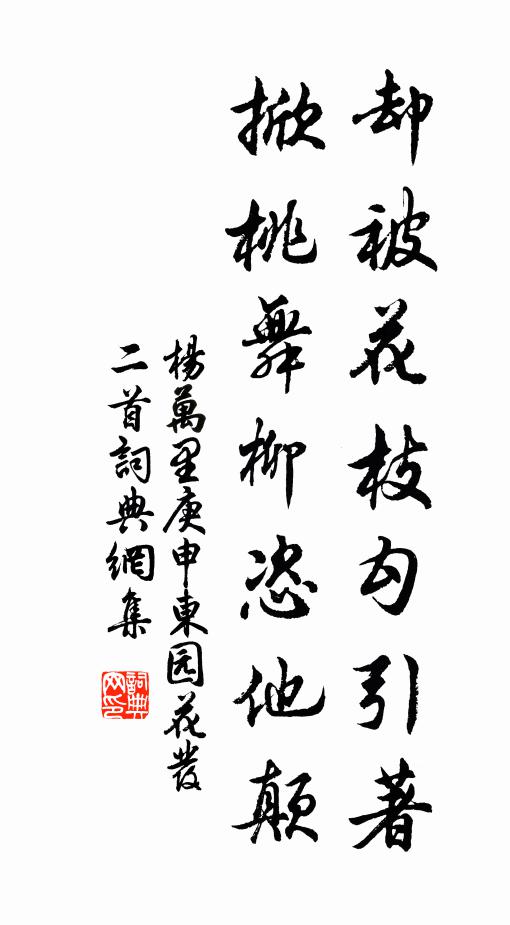 却被花枝勾引著
掀桃舞柳恣他顛
楊萬里庚申東园花發
二首詞典網集
詞典
网印